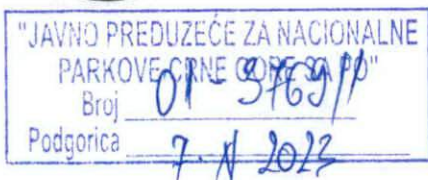 "JAVNO PREDUZEĆE ZA NACIONALNE
PARKOVE CRNE GORE SA PO"
Broj 01 -
Podgorica 7. 2023